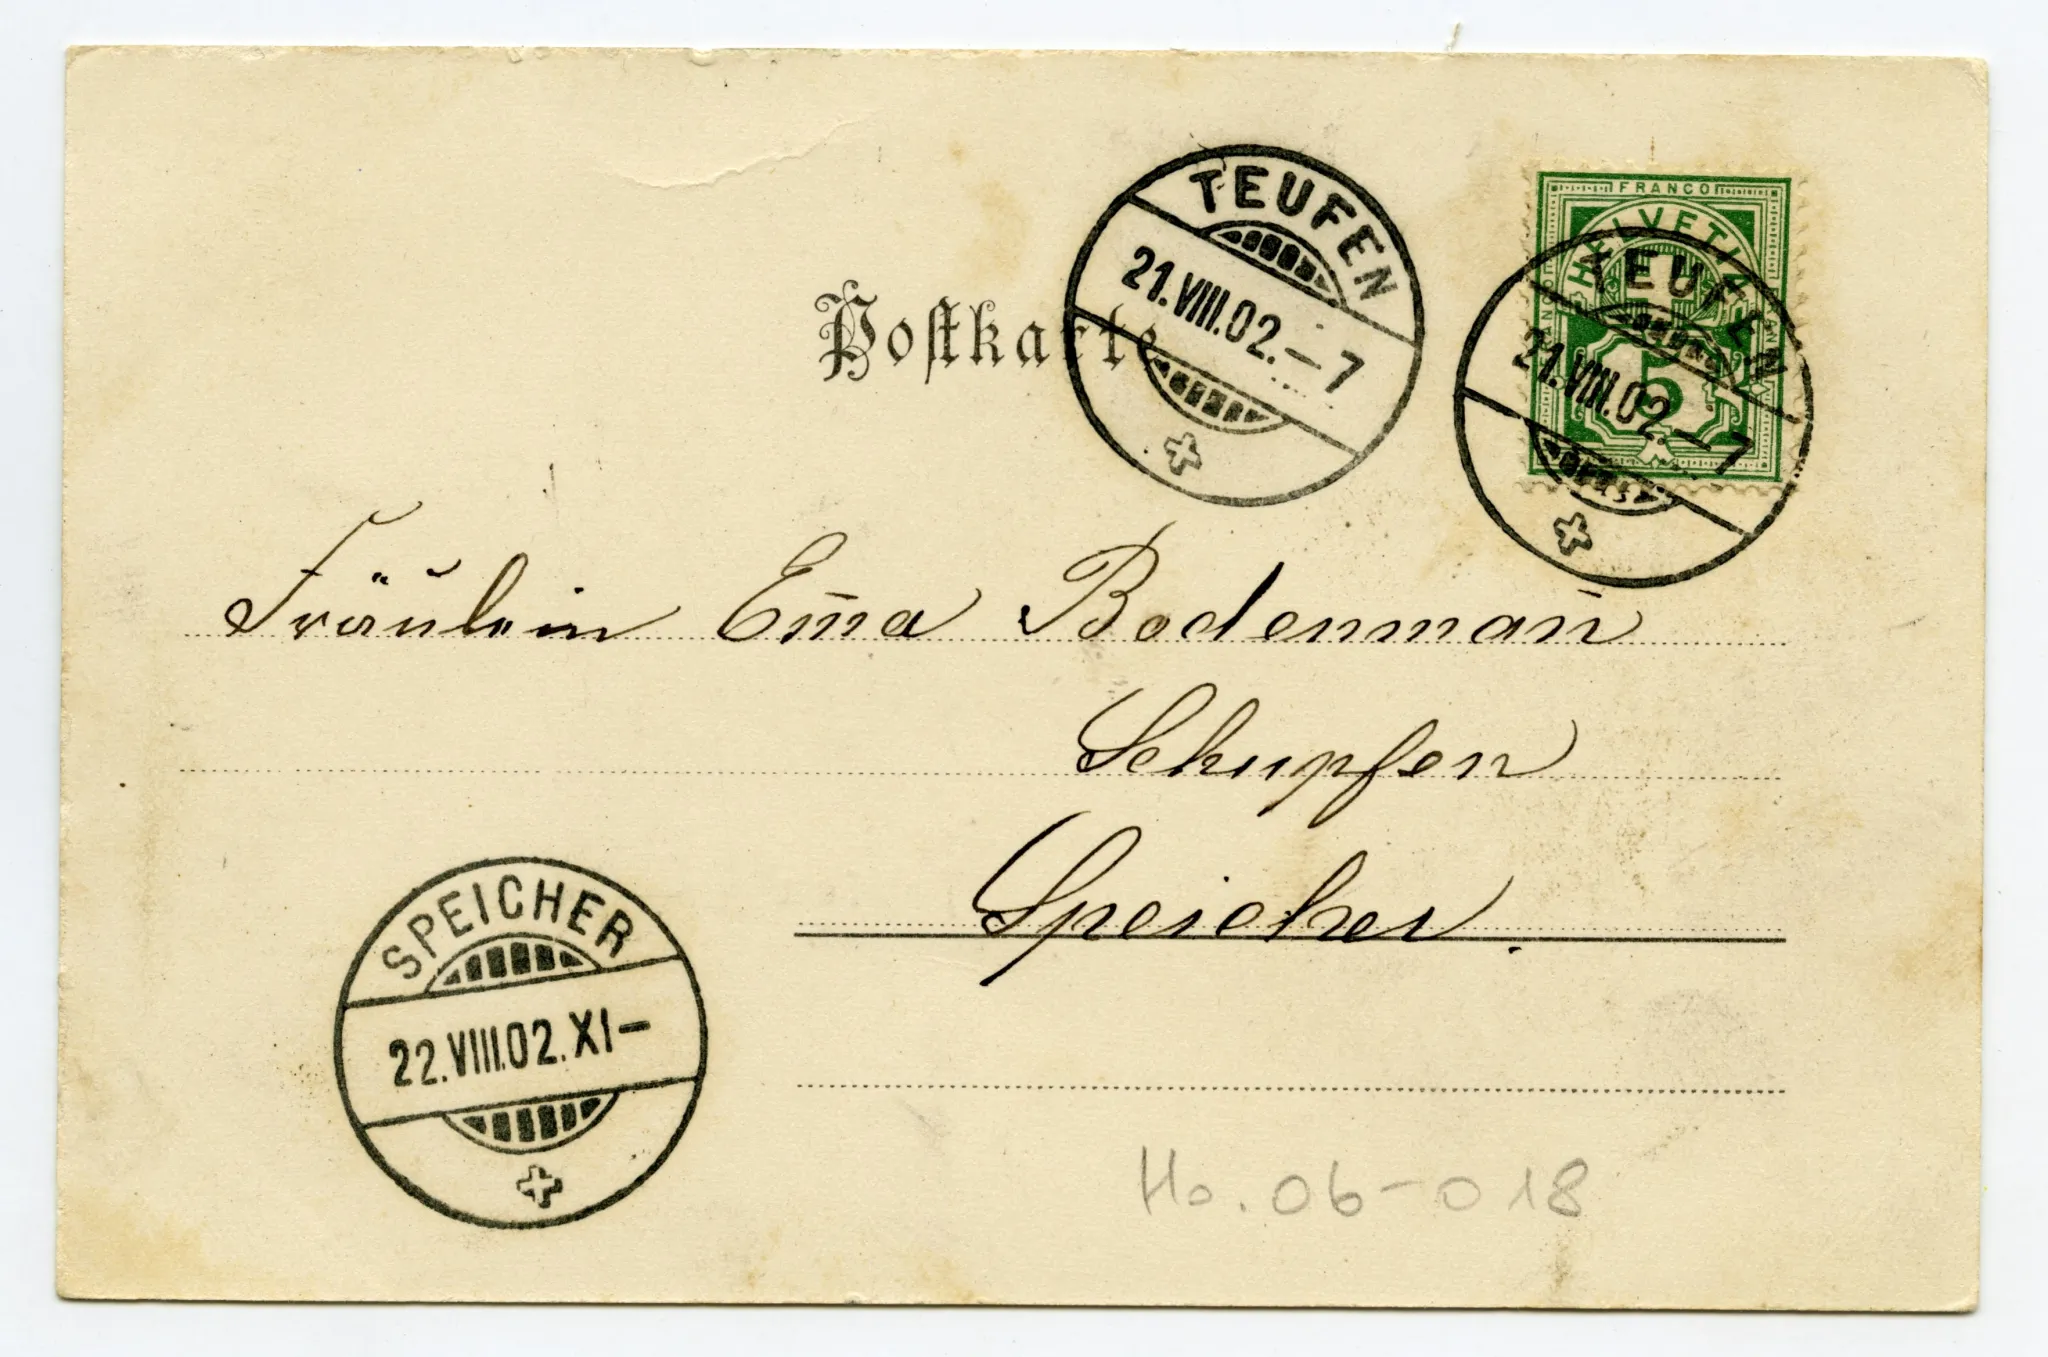 Postkarte
TEUFEN
21.VIII.02.–7
FRANCO
HELVETIA
5
TEUFEN
21.VIII.02.–7
Fräulein Em̄a Bodenman̄
Schupfen
Speicher.
SPEICHER
22.VIII.02.XI–
Ho. 06-018